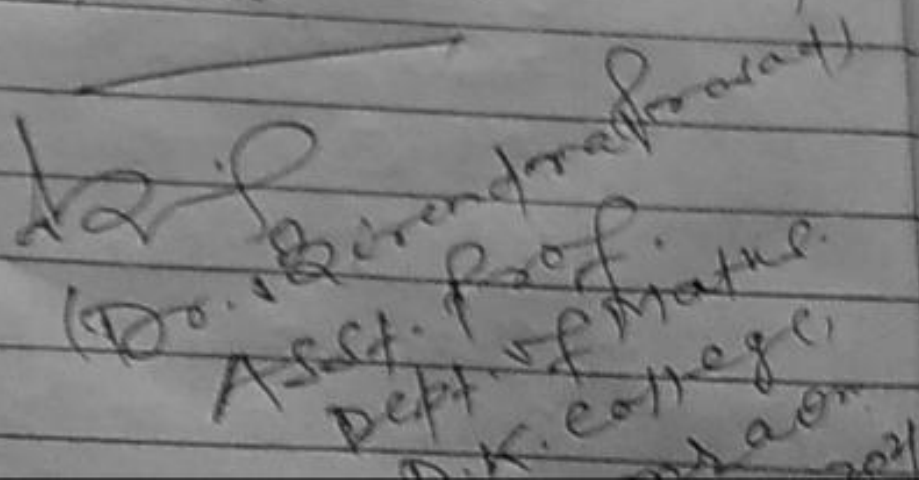 (Dr. Birendra Prasad)
Asst. Prof.
Dept. of Maths.
D.K. College,